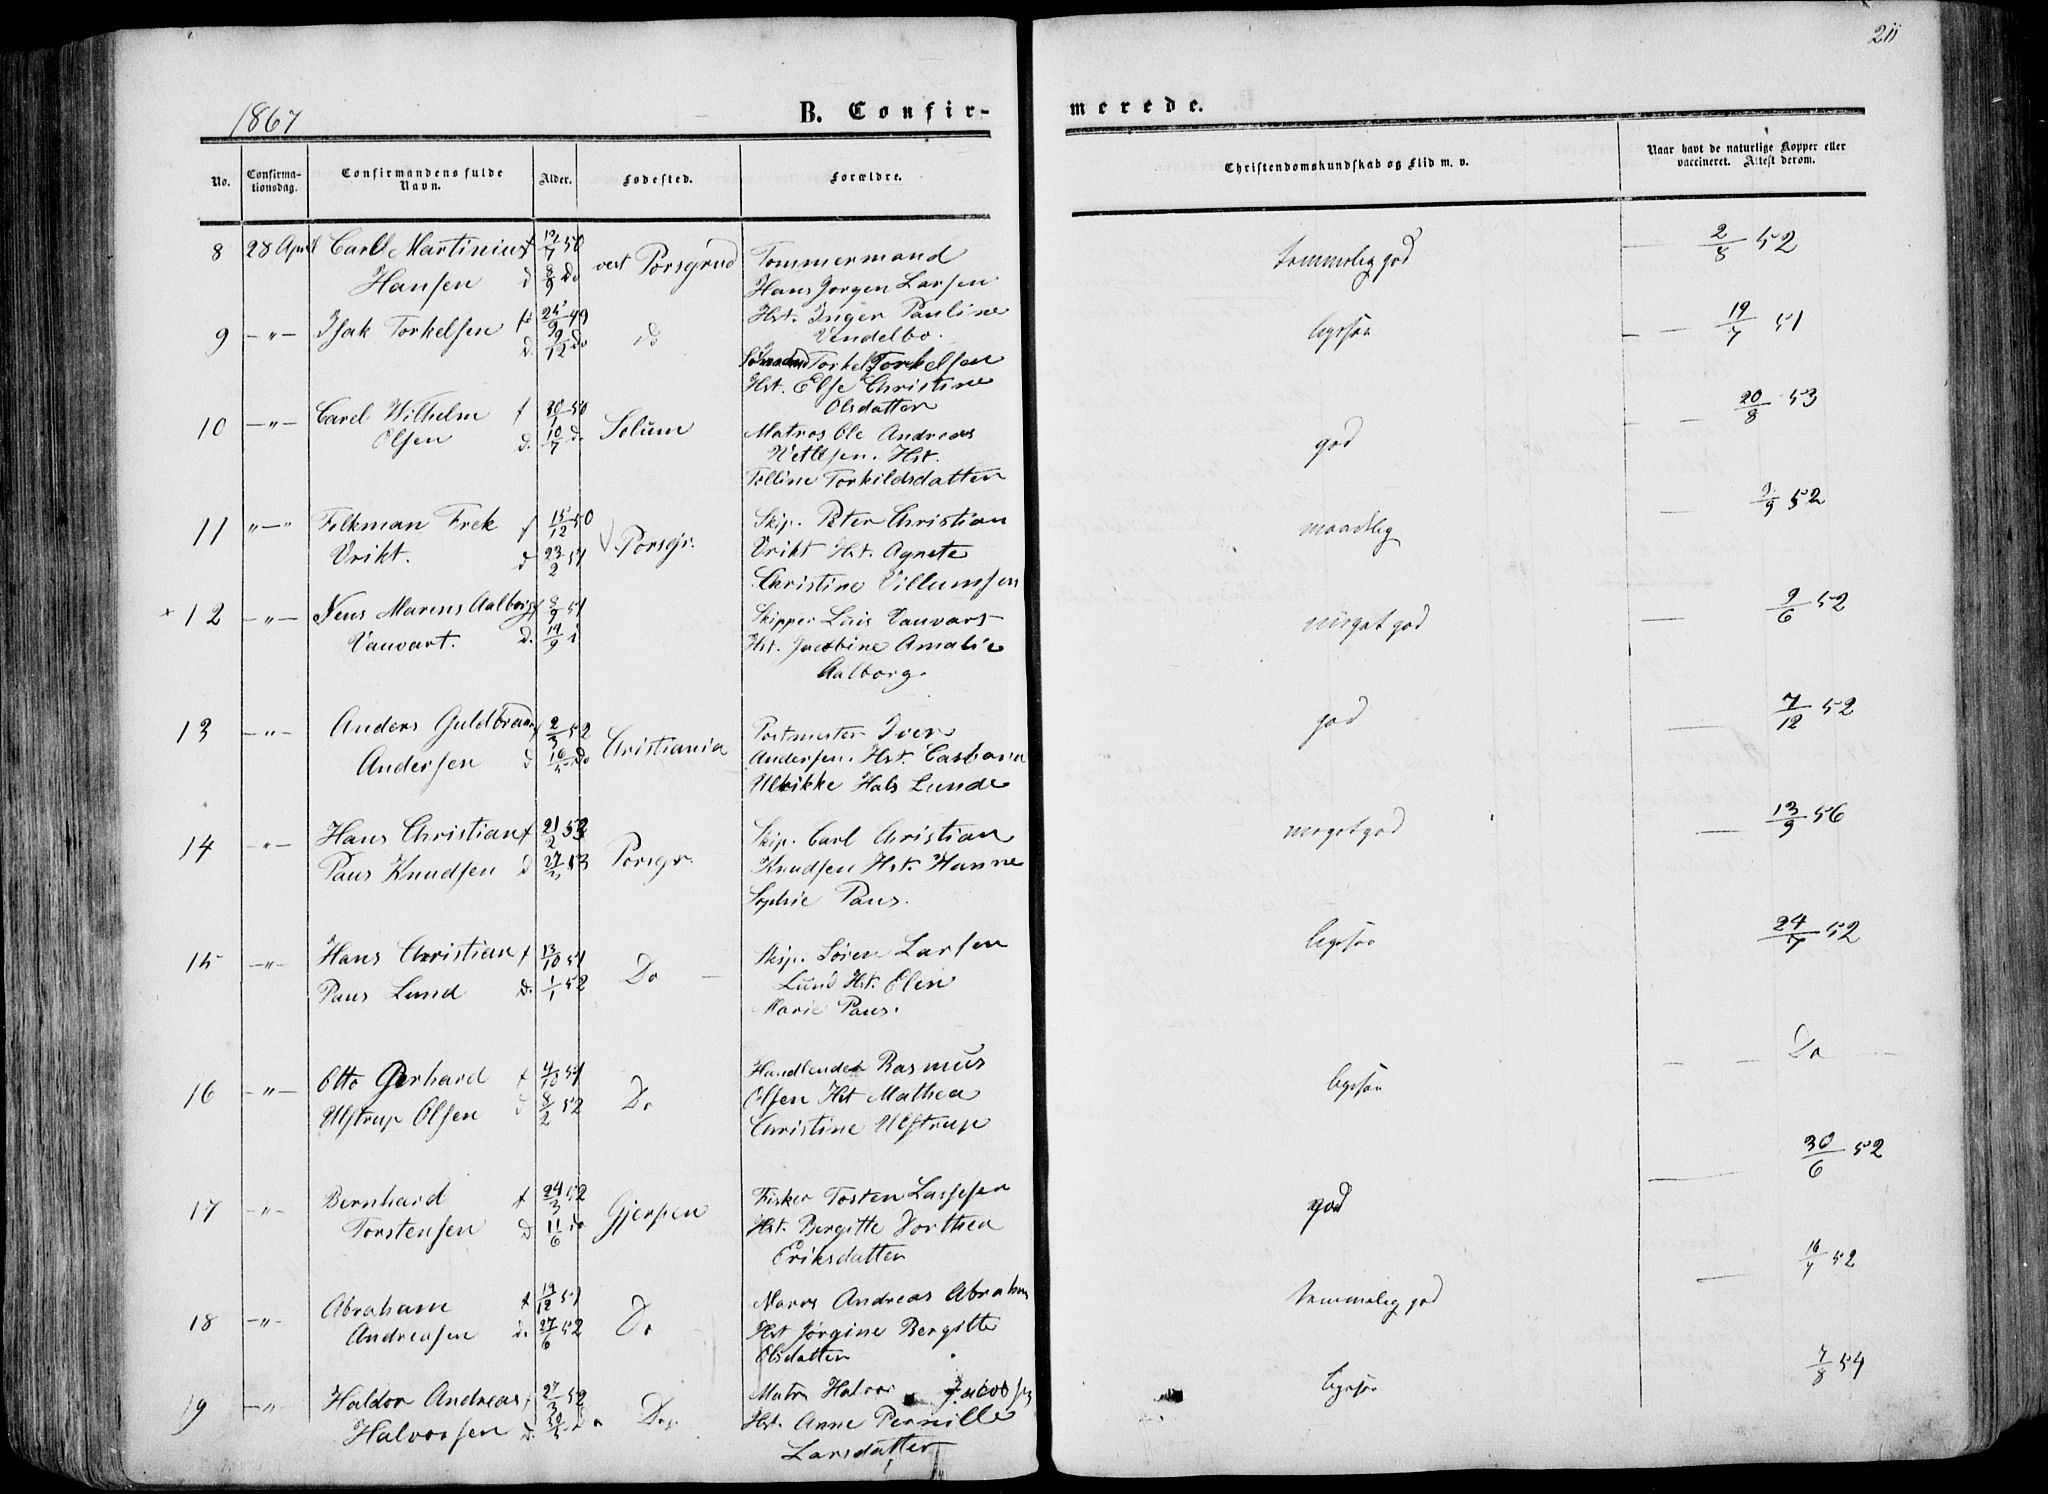 211
1867
B. Confir-
merede.
No.
Confirma-
tionsdag.
Confirmandens fulde
Navn.
Alder.
Fødested.
Forældre.
Christendomskundskab og Flid m. v.
Naar havt de naturlige Kopper eller
vaccineret. Attest derom.
8 28 April Carl Martinius f 50 vest Porsgrund Tømmermand temmelig god 2/8 52
Hansen d 8/9 do Hans Jørgen Larsen
9 -"- Isak Torkelsen f 25/9 49 do Hst. Inger Pauline ligesaa 19/7 51
d. 9/12 do Vendelbo.
Sømand Torkel Torkelsen
Hst. Else Christine
Olsdatter
10 -"- Carel Wilhelm f 30/1 50 Solum Matros Ole Andreas god 20/8 53
Olsen d. 10/7 do Vetlesen. Hst.
Torkildsdatter
11 "-" Felkman Frek f 15/12 50 V. Porsgr. Skip. Peter Christian maadelig 9/9 52
Vrikt. d 23/2 51 Vrikt Hst. Agnete
Christine Villumsen
x 12 -"- Jens Marens Aalborg f 8/9 51 Skipper Luis Vauvart meget god 9/6 52
Vauvart. d. 14/9 Hst. Jacobine Amalie
Aalborg.
13 -"- Anders Guldbrand f 2/3 52 Christiania Postmester Iver god 7/12 52
Andersen d 16/5 do Andersen. Hst.
Ulrikke Hals Lunde
14 -"- Hans Christian f 21/2 52 Porsgr. Skip. Carl Christian meget god 13/9 56
Paus Knudsen d 53 Knudsen Hst. Hanne
Sophie Paus.
15 -"- Hans Christian f 13/10 51 Do - Skip. Søren Larsen ligesaa 24/7 52
Paus Lund d. 1/1 52 Lund Hst. Elen
Marie Paus.
16 -"- Otto Gerhard f 4/10 51 Do Handlende Rasmus ligesaa Do
Ulstrup Olsen d 8/2 52 Olsen Hst Mathea
Christine Ulstrup
17 -"- Bernhard f 24/3 52 Gjerpen Fisker Tosten Lassesen god 30/6 52
Torstensen d 11/6 do Hst. Bergitte Dorthea
Eriksdatter
18 -"- Abraham f 19/12 51 Do Andreas Abraham temmelig god 16/7 52
Andreasen d. 27/6 52 Hst Jørgine Bergitte
Olsdatter
19 -" Haldor Andreas f 27/3 52 Do Matr Halvor Jacobsen ligesaa 7/8 54
Halvorsen d. 20/5 do Hst. Anne Pernille
Larsdatter